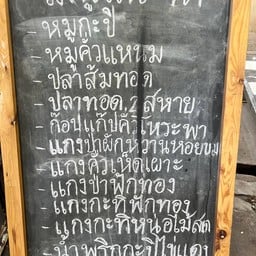 - หมูกะปิ
- หมูคั่วแหนม
- ปลาส้มทอด
- ปลาทอด 2 สหาย
- ก๊อปแก๊ปคั่วโหระพา
- แกงป่าผักหวานหอยขม
- แกงคั่วเห็ดเผาะ
- แกงป่าฟักทอง
- แกงกะทิฟักทอง
- แกงกะทิหน่อไม้สด
- น้ำพริกกะปิไข่แดง